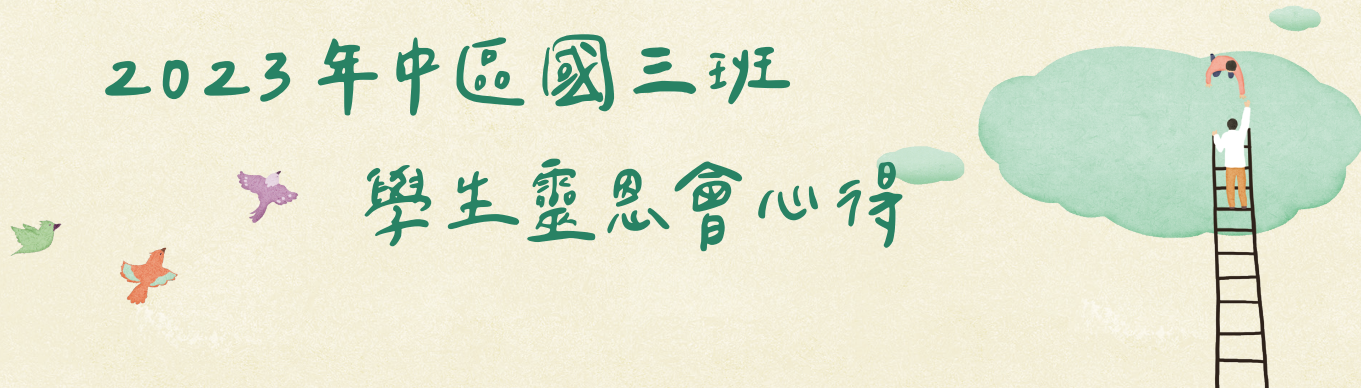 2023年中區國三班
學生靈恩會心得